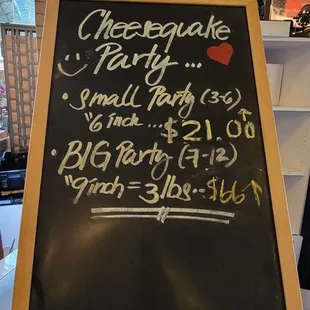 Cheesequake
Party...
• Small Party (3-6)
"6 inch... $21.00↑
• BIG Party (7-12)
"9inch = 3lbs.. $66↑